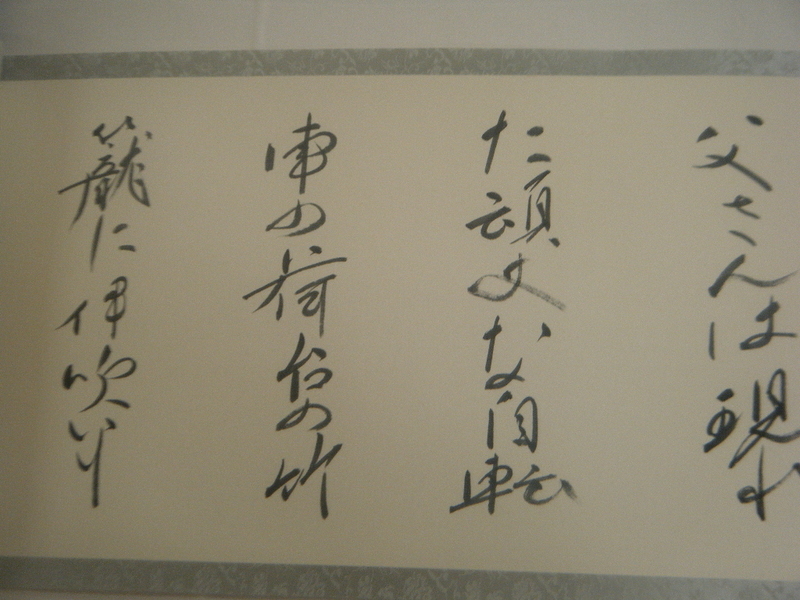 父さんは現れ
た頑丈な自転
車の荷台の竹
籠に伊吹山